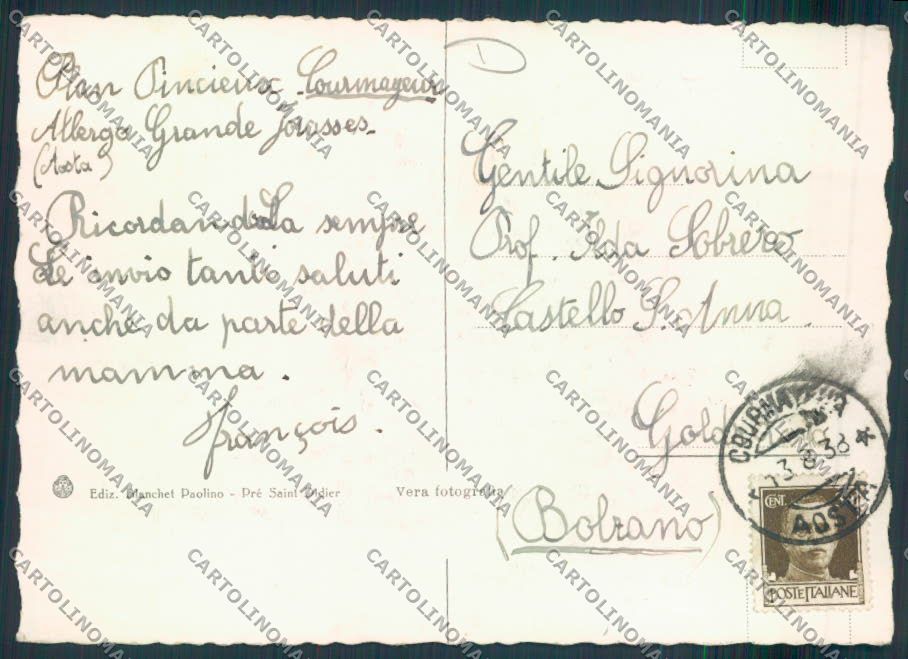 Plan Pincieux Courmayeur
Albergo Grande Jorasses
(Aosta)
Ricordandola sempre
Le invio tanti saluti
anche da parte della
mamma.
François.
Ediz. Blanchet Paolino - Pré Saint Didier
Vera fotografia
Gentile Signorina
Prof. Ilda Sobrero
Castello S. Anna
(Bolzano)
COURMAYEUR
13.8.38
AOSTA
CENT.
POSTE ITALIANE
CARTOLINOMANIA